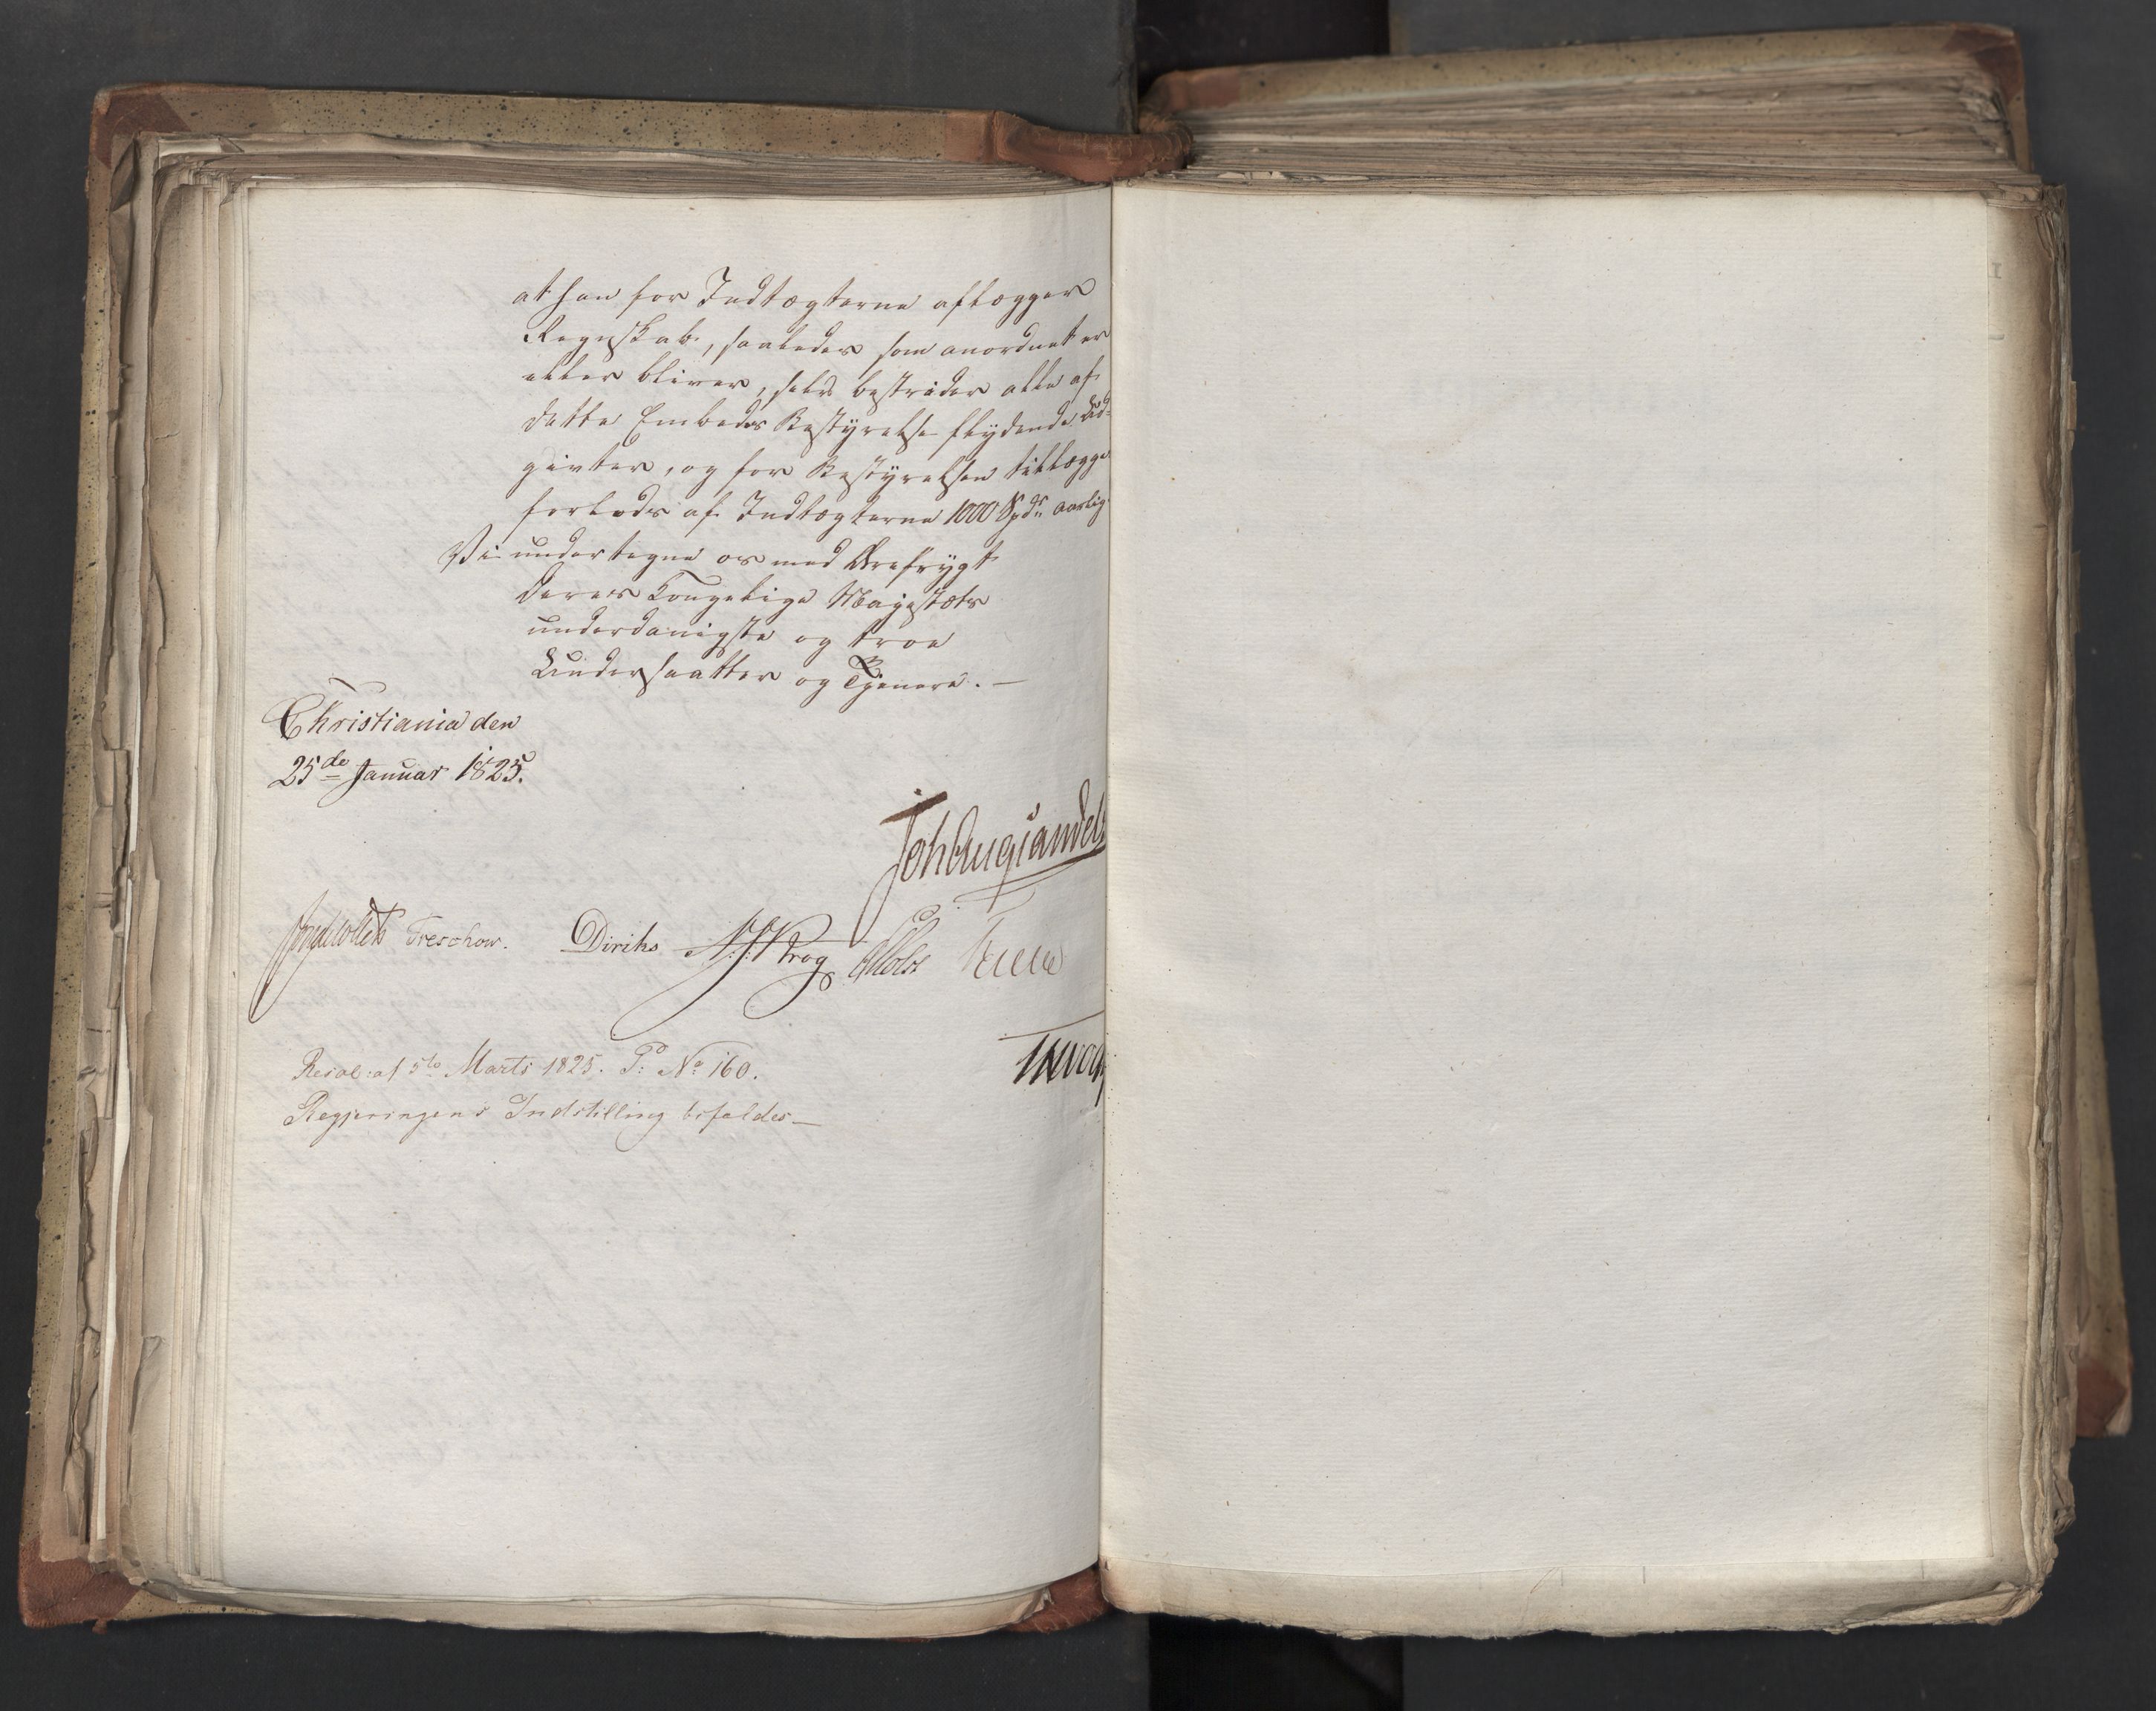 at han for Indtægterne aflægger
Regnskab, saaledes som anordnet er
eller bliver, selv bestrider alle af
dette Embeds Bestyrelse flydende Ud-
givter, og for Bestyrelsen tillægges
forlods af Indtægterne 1000 Spdr aarlig
Vi undertegne os med Ærefrygt
Deres Kongelige Majestæts
underdanigste og troe
Undersaatter og Tjenere. —
Christiania den
25de Januar 1825.
Joh Aug Sandels
Jonas Collett Treschow. Diriks A. S. Krog Holst
Resol: af 5te Marts 1825. P: No 160.
Regjeringens Indstilling bifaldes —